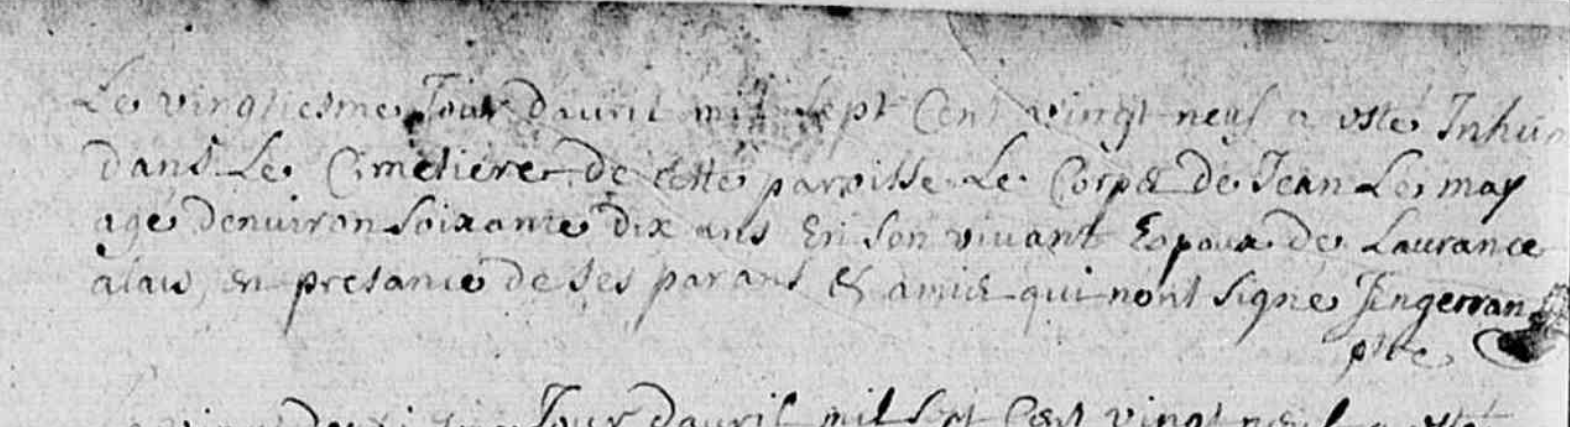 Le vingtiesme Jour davril mil sept Cent vingt neuf a este Inhum
dans Le Cimetiere de cette parroisse Le Corps de Jean Le may
agé denviron soixante dix ans En son vivant Espoux de Laurance
alais en presance de ses parans & amis qui nont signe Jingerran
ptre
Jour davril mil sept Cent vingt neuf a este